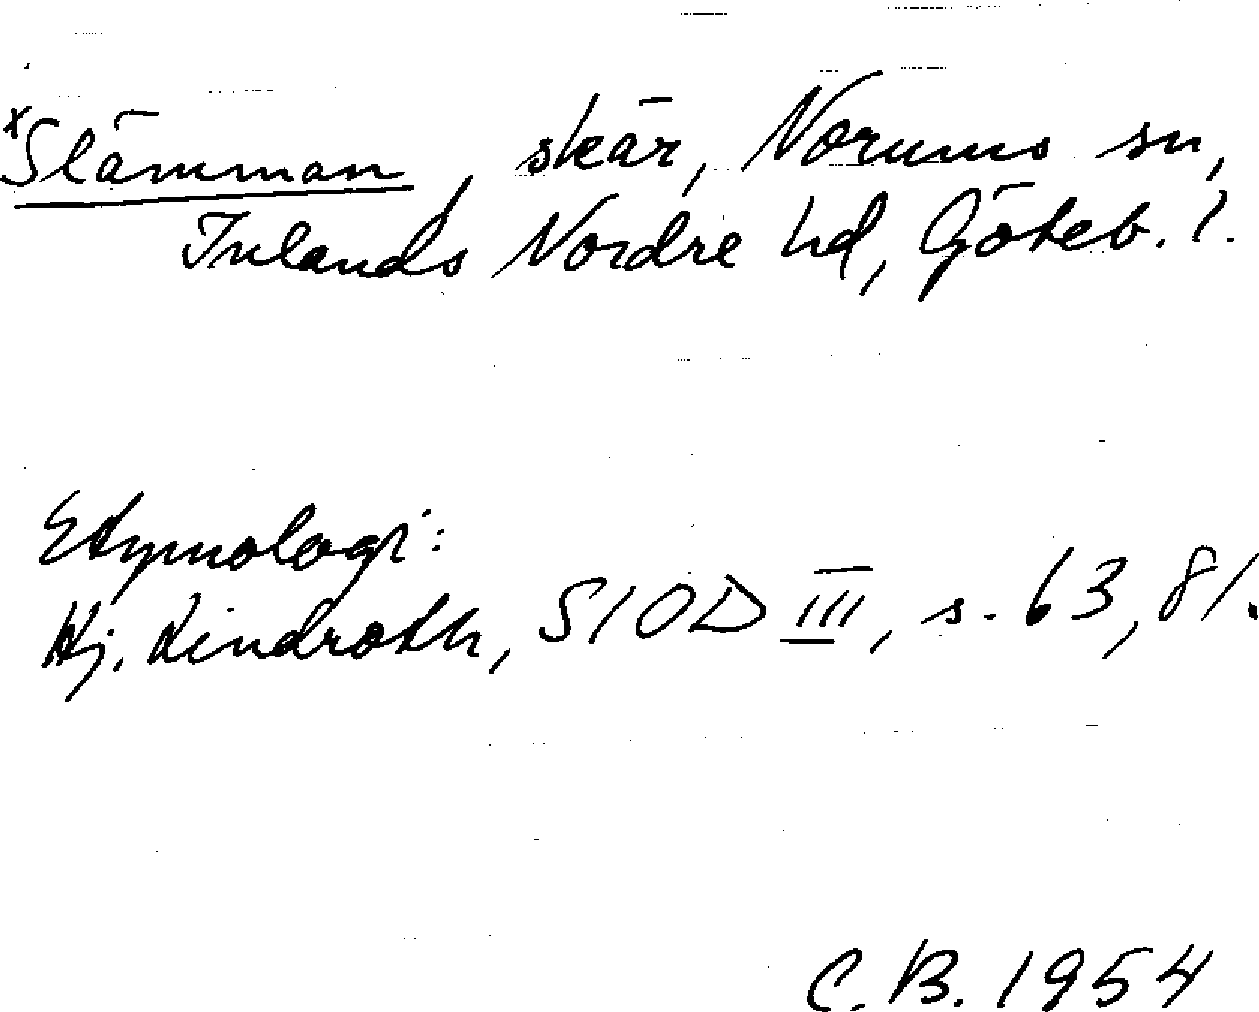 *Slämman, skär, Norums sn,
Inlands Nordre hd, Göteb. l.
Etymologi:
Hj. Lindroth, SIOD III, s. 63, 81.
C.B. 1954